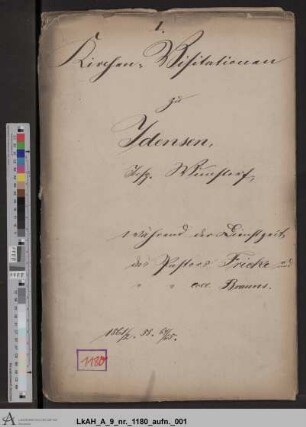 I.
Kirchen-Visitationen
zu
Idensen,
Insp. Wunstorf,
während der Dienstzeit
des Pastors Fricke und
" " coll. Brauns.
1180
LkAH_A_9_nr._1180_aufn._001